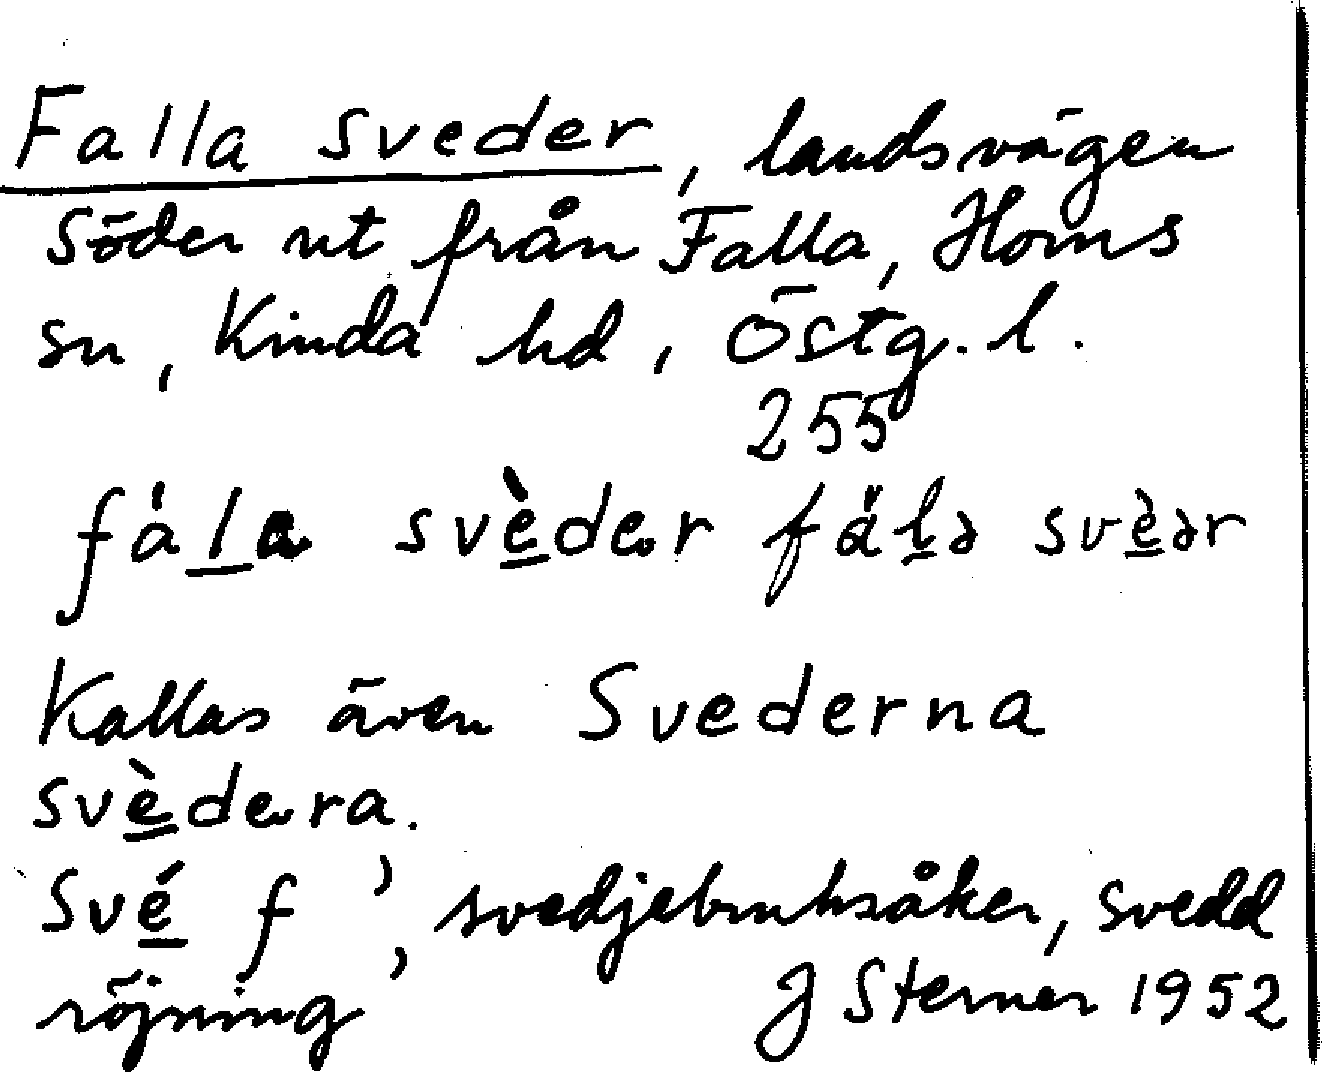 Falla sveder, landsvägen
söder ut från Falla, Horns
sn, Kinda hd, Östg. l.
255
fála svèder fä́lə svèər
Kallas även Svederna
svèdera.
Své f ’, svedjebruksåker, svedd
röjning’ J Sterner 1952